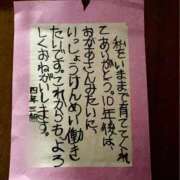 私をいままで育ててくれ
てありがとう。10年後は、
おかあさんみたいに、
いっしょうけんめい働き
たいです。これからもよろ
しくおねがいします。
四年三組